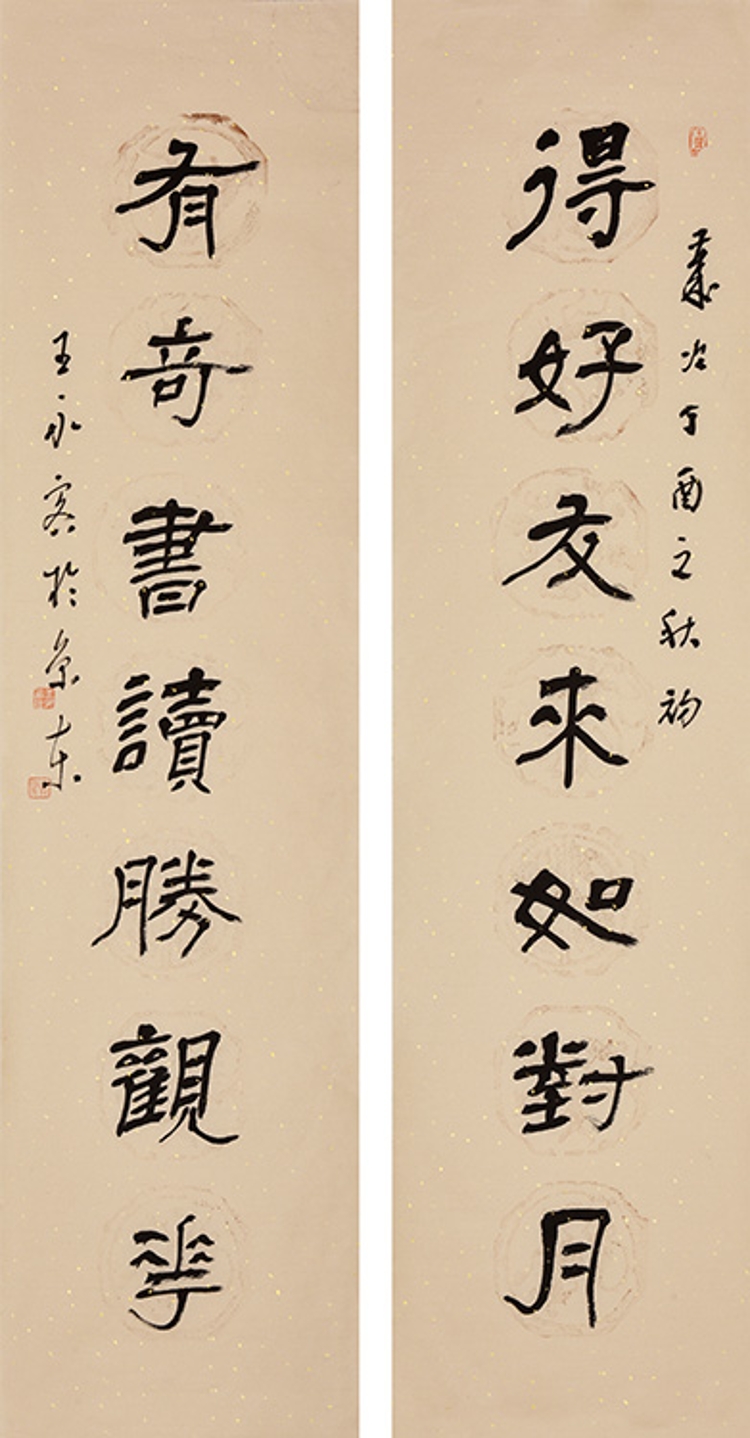 得好友來如對月
歲次丁酉之秋初
有奇書讀勝觀花
王永寫於京東